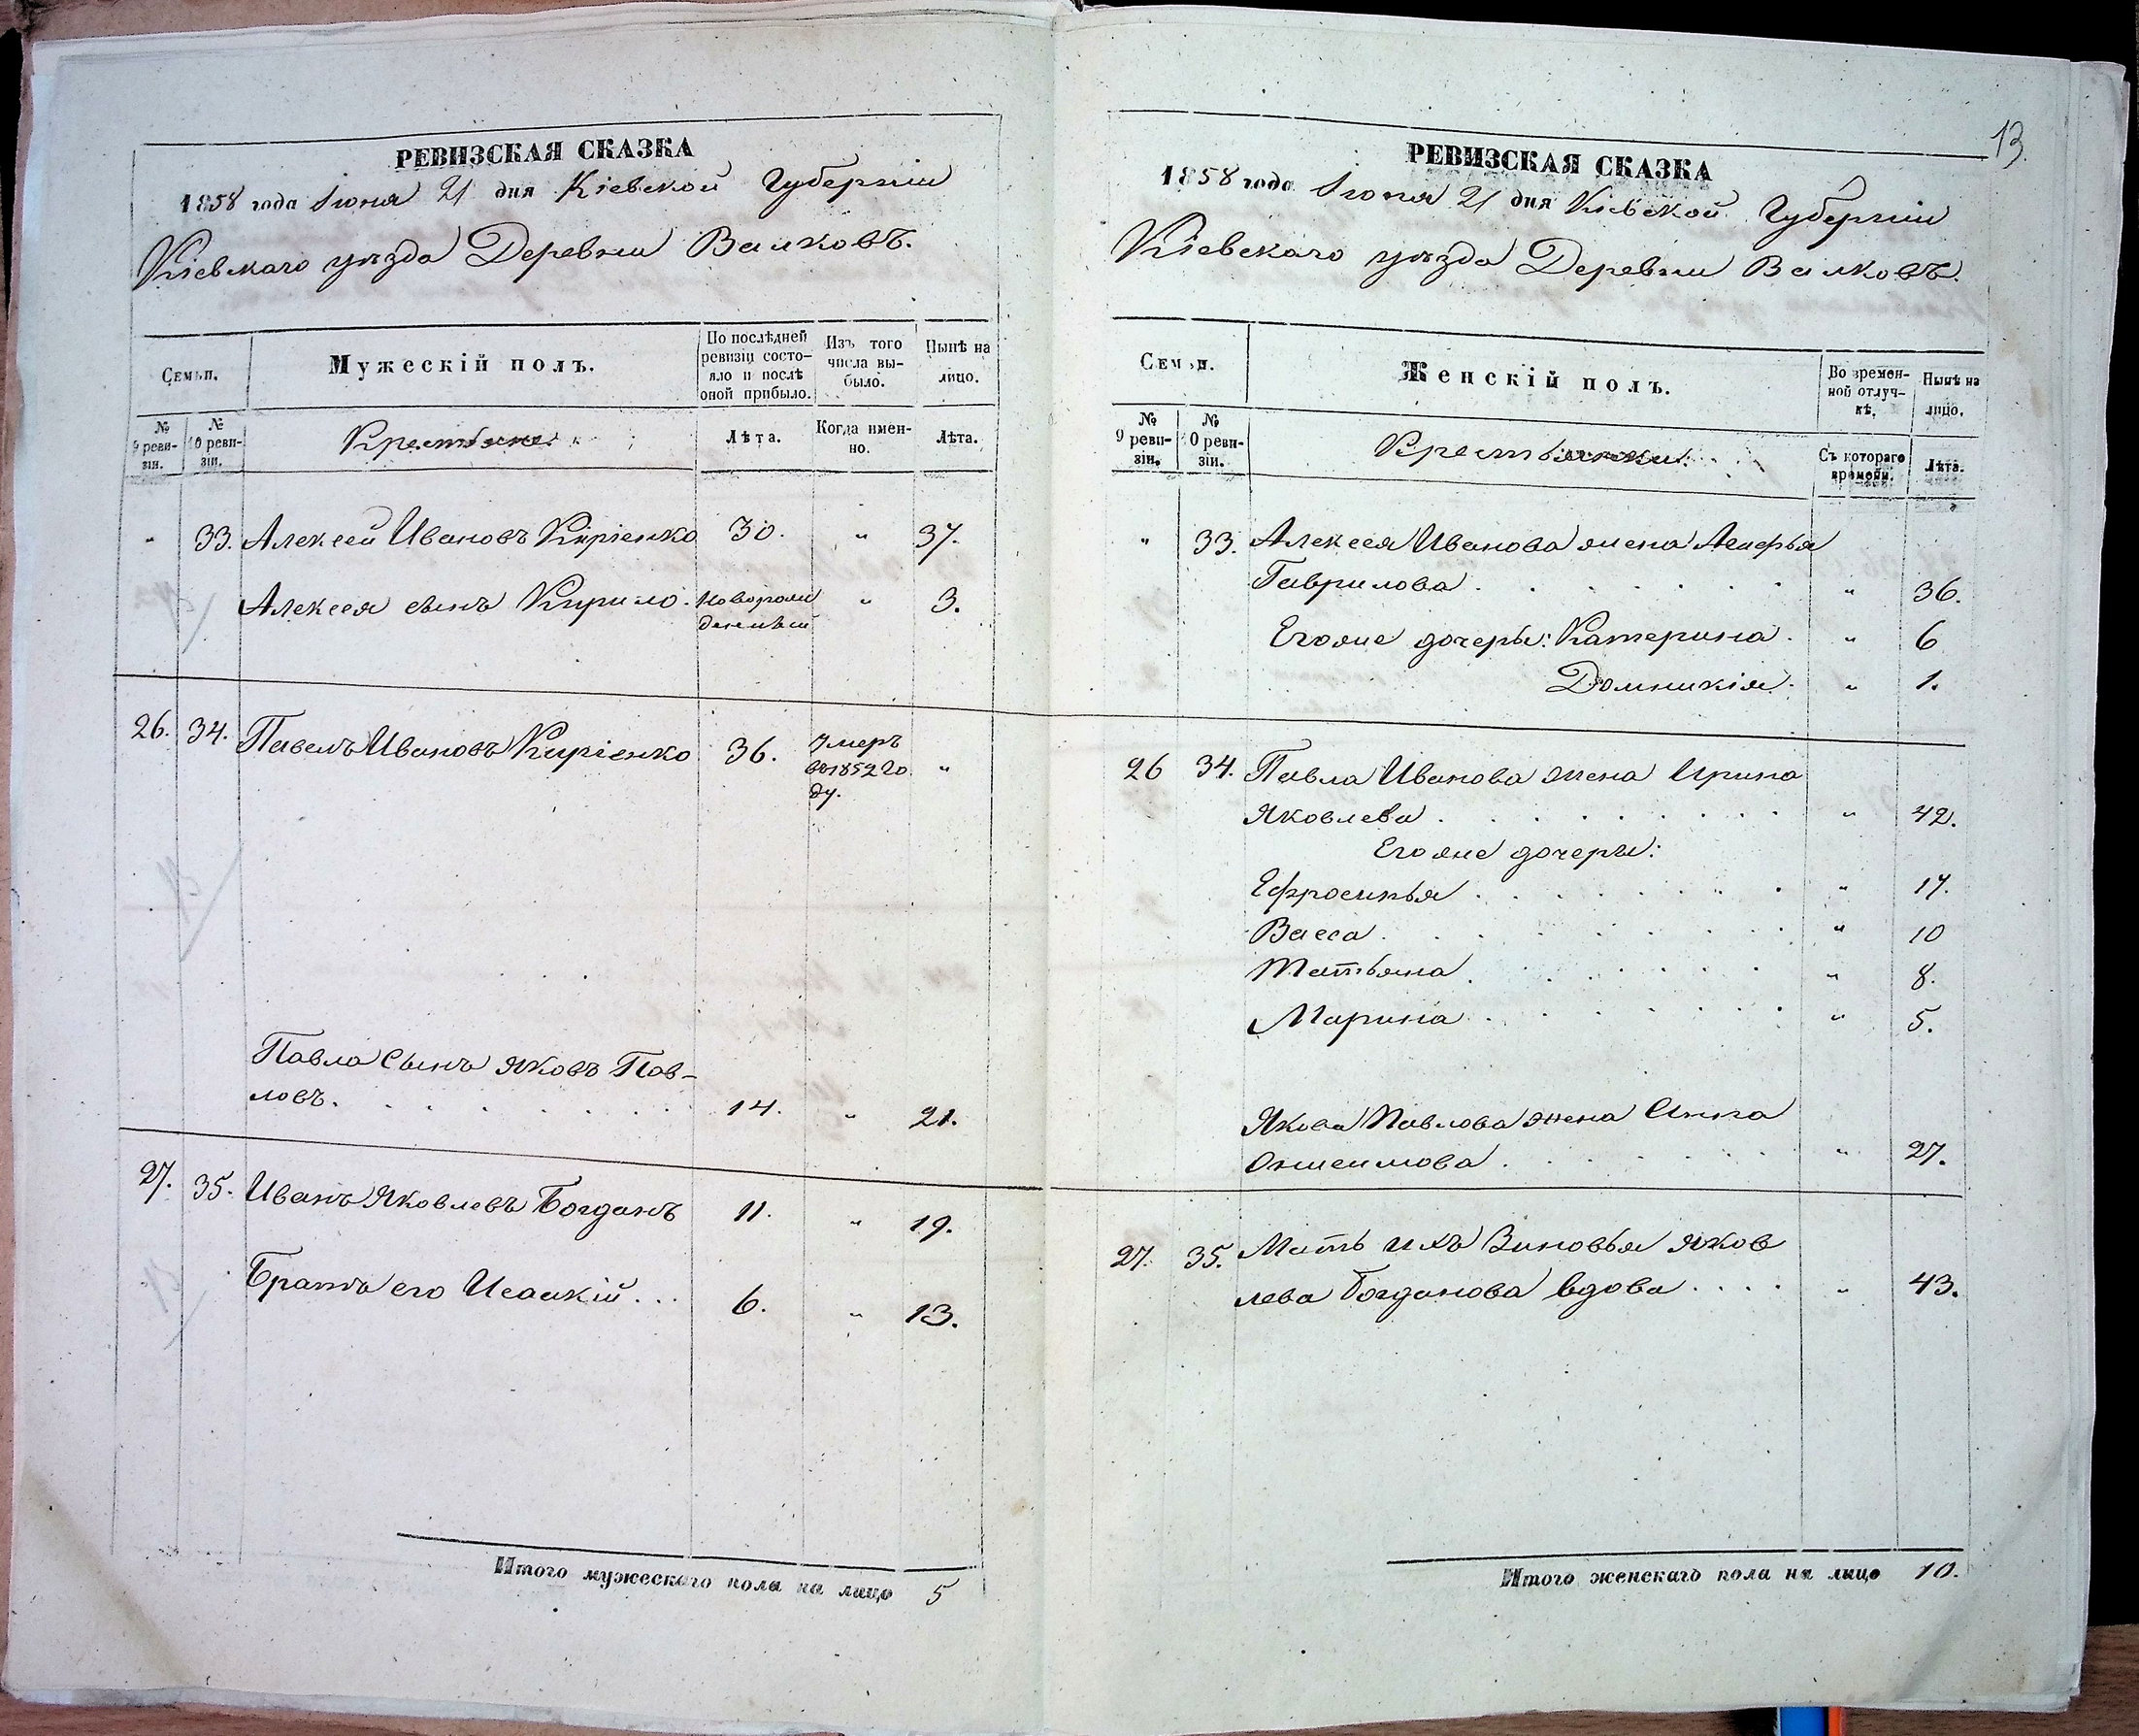 РЕВИЗСКАЯ СКАЗКА
1858 года Іюня 21 дня Кіевской Губерніи
Кіевскаго уѣзда Деревни Валковъ.
Семьи.
Мужескій полъ.
По послѣдней ревизіи состо-
яло и послѣ оной прибыло.
Изъ того числа вы-
было.
Нынѣ на лицо.
№ 9 реви-
зіи.
№ 10 реви-
зіи.
Крестьяне.
Лѣта.
Когда имен-
но.
Лѣта.
" 33. Алексей Ивановъ Киріенко 30. " 37.
Алексея сынъ Кирило. Новорож
денный " 3.
26. 34. Павелъ Ивановъ Киріенко 36. Умеръ
въ 1852 го
ду. "
Павла Сынъ Яковъ Пав-
ловъ. 14. " 21.
27. 35. Иванъ Яковлевъ Богданъ 11. " 19.
Братъ его Исаакій... 6. " 13.
Итого мужескаго пола на лицо 5
13.
РЕВИЗСКАЯ СКАЗКА
1858 года Іюня 21 дня Кіевской Губерніи
Кіевскаго уѣзда Деревни Валковъ.
Семьи.
Женскій полъ.
Во времен-
ной отлуч-
кѣ.
Нынѣ на лицо.
№ 9 реви-
зіи.
№ 10 реви-
зіи.
Крестьянки.
Съ котораго времени.
Лѣта.
" 33. Алексея Иванова жена
Гаврилова. " 36.
Его же дочеры: Катерина. " 6
Домникія. " 1.
26 34. Павла Иванова жена Ирина
Яковлева. " 42.
Его же дочеры:
Ефросинья. " 17.
Васса. " 10
Татьяна. " 8.
Марина. " 5.
Якова Павлова жена Анна
" 27.
27. 35. Мать ихъ Зиновья Яков
лева Богданова вдова.... " 43.
Итого женскаго пола на лицо 10.